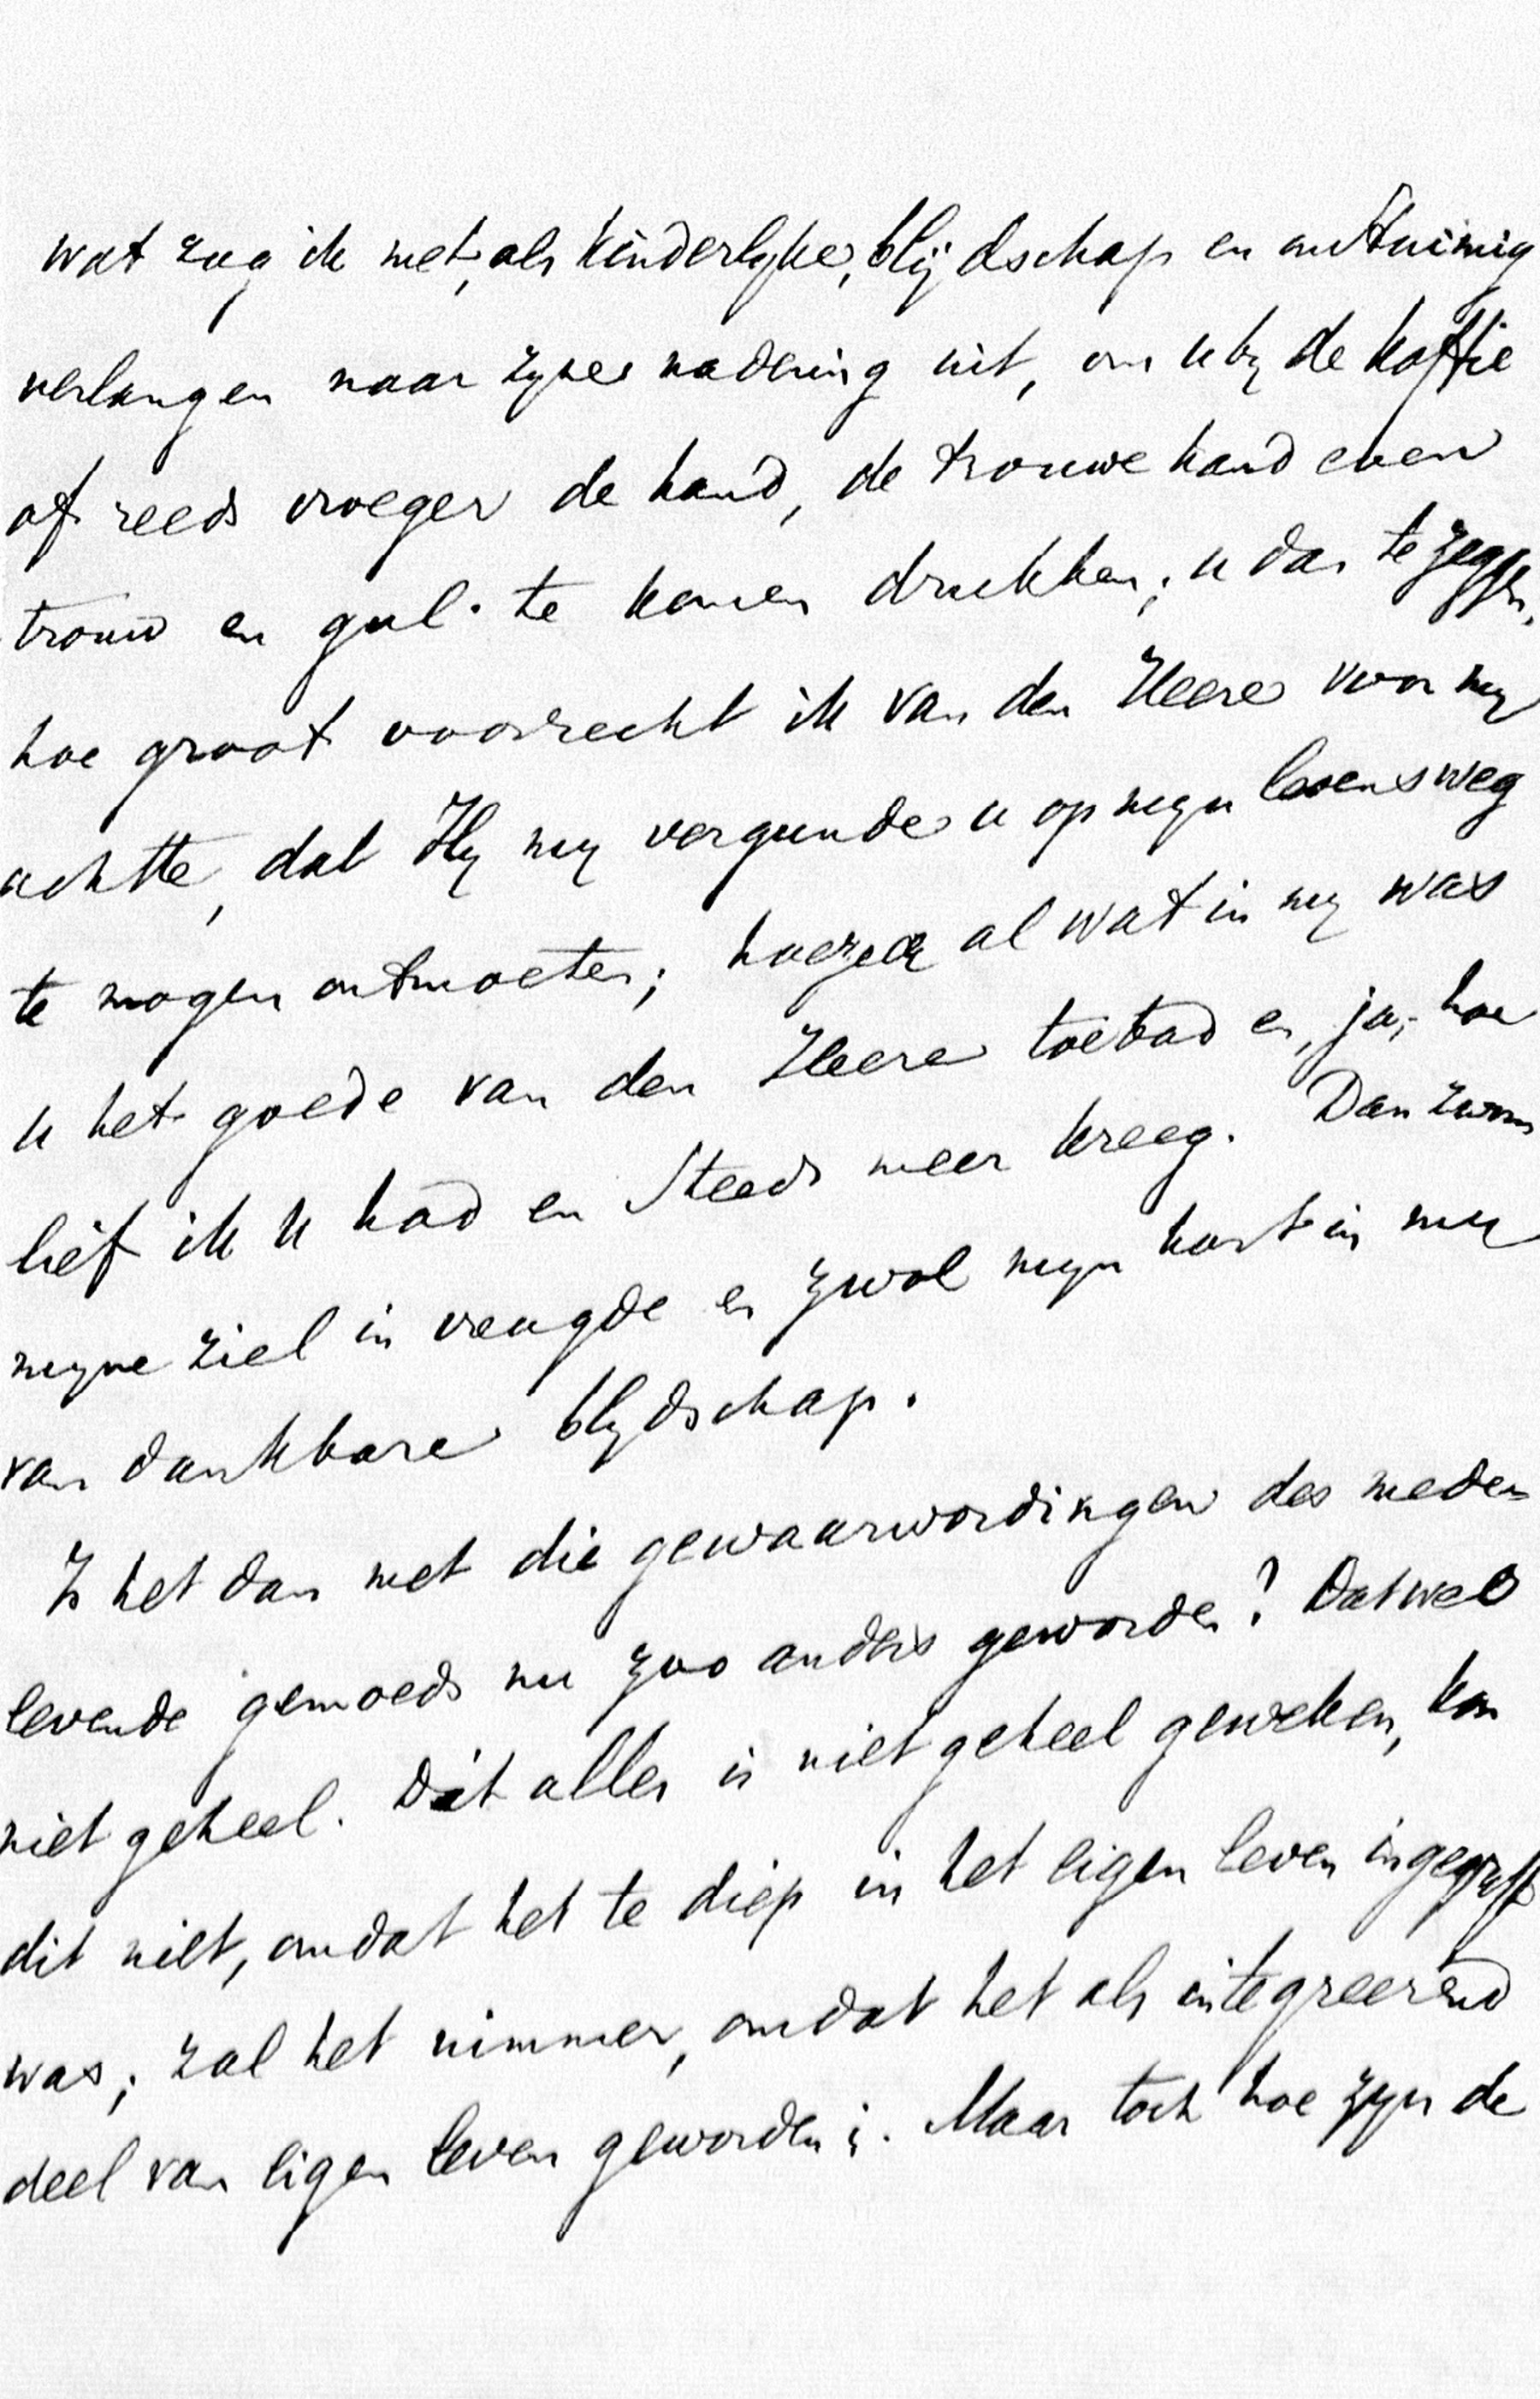 wat zag ik met, als kinderlyke, blijdschap en onstuimig
verlangen naar zyne nadering uit, om u by de koffie
of reeds vroeger de hand, de trouwe hand even
trouw en gul te komen drukken; u dan te zeggen,
hoe groot voorrecht ik van den Heere voor my
achtte, dat Hy my vergunde u op mijn levensweg
te mogen ontmoeten; hoezeer al wat in my was
u het goede van den Heere toebad en, ja, hoe
lief ik u had en steeds meer kreeg. Dan zwom
myne ziel in vreugde en zwol myn hart in my
van dankbare blydschap.
Is het dan met die gewaarwordingen des mede-
levende gemoeds nu zoo anders geworden? Dat wel
niet geheel. Dit alles is niet geheel geweken, kon
dit niet, omdat het te diep in het eigen leven ingegrift
was; zal het nimmer, omdat het als integreerend
deel van eigen leven geworden is. Maar toch hoe zyn de